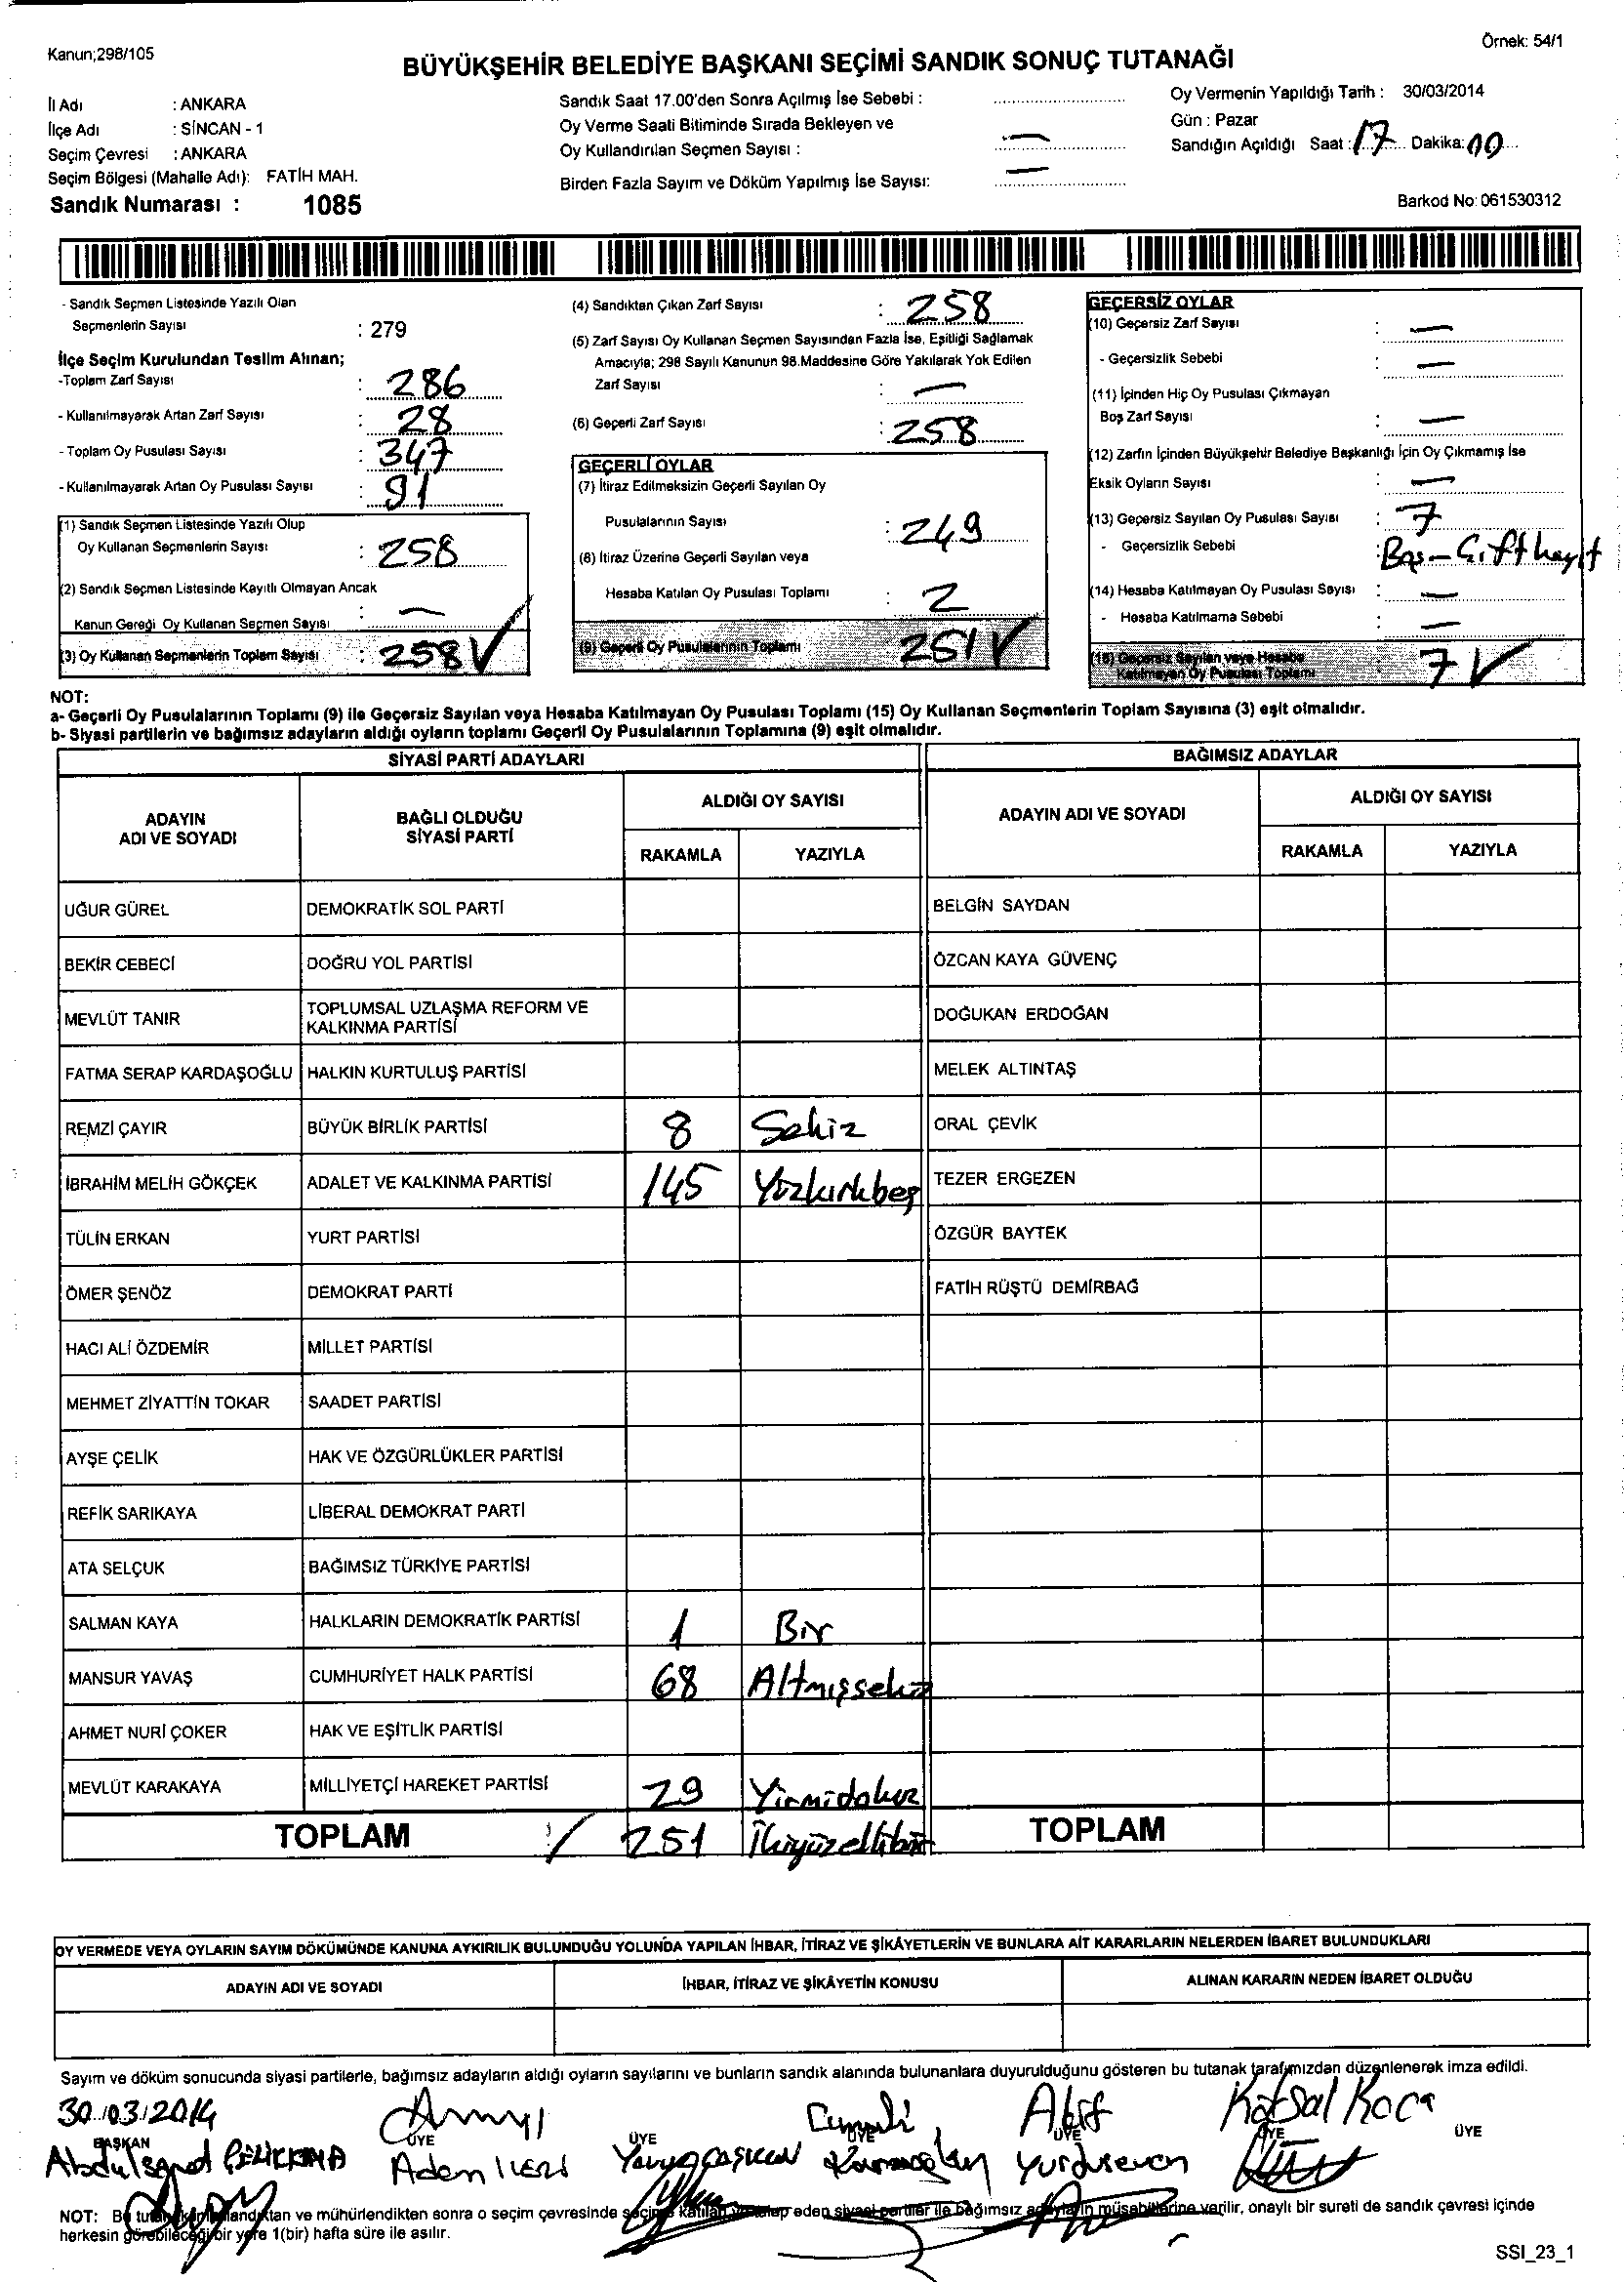 Kanun;298/105
Örnek: 54/1
BÜYÜKŞEHİR BELEDİYE BAŞKANI SEÇİMİ SANDIK SONUÇ TUTANAĞI
İl Adı : ANKARA
İlçe Adı : SİNCAN - 1
Seçim Çevresi : ANKARA
Seçim Bölgesi (Mahalle Adı): FATİH MAH.
Sandık Numarası : 1085
Sandık Saat 17.00'den Sonra Açılmış İse Sebebi :
Oy Verme Saati Bitiminde Sırada Bekleyen ve
Oy Kullandırılan Seçmen Sayısı : —
Birden Fazla Sayım ve Döküm Yapılmış İse Sayısı: —
Oy Vermenin Yapıldığı Tarih : 30/03/2014
Gün : Pazar
Sandığın Açıldığı Saat : 17 Dakika: 00
Barkod No: 061530312
- Sandık Seçmen Listesinde Yazılı Olan
Seçmenlerin Sayısı : 279
İlçe Seçim Kurulundan Teslim Alınan;
-Toplam Zarf Sayısı : 286
- Kullanılmayarak Artan Zarf Sayısı : 28
- Toplam Oy Pusulası Sayısı : 347
- Kullanılmayarak Artan Oy Pusulası Sayısı : 91
(1) Sandık Seçmen Listesinde Yazılı Olup
Oy Kullanan Seçmenlerin Sayısı : 258
(2) Sandık Seçmen Listesinde Kayıtlı Olmayan Ancak
Kanun Gereği Oy Kullanan Seçmen Sayısı : —
(3) Oy Kullanan Seçmenlerin Toplam Sayısı : 258 √
(4) Sandıktan Çıkan Zarf Sayısı : 258
(5) Zarf Sayısı Oy Kullanan Seçmen Sayısından Fazla İse, Eşitliği Sağlamak
Amacıyla; 298 Sayılı Kanunun 98.Maddesine Göre Yakılarak Yok Edilen
Zarf Sayısı : —
(6) Geçerli Zarf Sayısı : 258
GEÇERLİ OYLAR
(7) İtiraz Edilmeksizin Geçerli Sayılan Oy
Pusulalarının Sayısı : 249
(8) İtiraz Üzerine Geçerli Sayılan veya
Hesaba Katılan Oy Pusulası Toplamı : 2
(9) Geçerli Oy Pusulalarının Toplamı 251 √
GEÇERSİZ OYLAR
(10) Geçersiz Zarf Sayısı : —
- Geçersizlik Sebebi : —
(11) İçinden Hiç Oy Pusulası Çıkmayan
Boş Zarf Sayısı : —
(12) Zarfın İçinden Büyükşehir Belediye Başkanlığı İçin Oy Çıkmamış İse
Eksik Oyların Sayısı : —
(13) Geçersiz Sayılan Oy Pusulası Sayısı : 7
- Geçersizlik Sebebi : Boş-Çift hayıt
(14) Hesaba Katılmayan Oy Pusulası Sayısı : —
- Hesaba Katılmama Sebebi : —
(15) Geçersiz Sayılan veya Hesaba
Katılmayan Oy Pusulası Toplamı 7 √
NOT:
a- Geçerli Oy Pusulalarının Toplamı (9) ile Geçersiz Sayılan veya Hesaba Katılmayan Oy Pusulası Toplamı (15) Oy Kullanan Seçmenlerin Toplam Sayısına (3) eşit olmalıdır.
b- Siyasi partilerin ve bağımsız adayların aldığı oyların toplamı Geçerli Oy Pusulalarının Toplamına (9) eşit olmalıdır.
SİYASİ PARTİ ADAYLARI
BAĞIMSIZ ADAYLAR
ADAYIN ADI VE SOYADI
BAĞLI OLDUĞU SİYASİ PARTİ
ALDIĞI OY SAYISI
RAKAMLA YAZIYLA
ADAYIN ADI VE SOYADI
ALDIĞI OY SAYISI
RAKAMLA YAZIYLA
UĞUR GÜREL DEMOKRATİK SOL PARTİ BELGİN SAYDAN
BEKİR CEBECİ DOĞRU YOL PARTİSİ ÖZCAN KAYA GÜVENÇ
MEVLÜT TANIR TOPLUMSAL UZLAŞMA REFORM VE KALKINMA PARTİSİ DOĞUKAN ERDOĞAN
FATMA SERAP KARDAŞOĞLU HALKIN KURTULUŞ PARTİSİ MELEK ALTINTAŞ
REMZİ ÇAYIR BÜYÜK BİRLİK PARTİSİ 8 Sekiz ORAL ÇEVİK
İBRAHİM MELİH GÖKÇEK ADALET VE KALKINMA PARTİSİ 145 Yüzkırkbeş TEZER ERGEZEN
TÜLİN ERKAN YURT PARTİSİ ÖZGÜR BAYTEK
ÖMER ŞENÖZ DEMOKRAT PARTİ FATİH RÜŞTÜ DEMİRBAĞ
HACI ALİ ÖZDEMİR MİLLET PARTİSİ
MEHMET ZİYATTİN TOKAR SAADET PARTİSİ
AYŞE ÇELİK HAK VE ÖZGÜRLÜKLER PARTİSİ
REFİK SARIKAYA LİBERAL DEMOKRAT PARTİ
ATA SELÇUK BAĞIMSIZ TÜRKİYE PARTİSİ
SALMAN KAYA HALKLARIN DEMOKRATİK PARTİSİ 1 Bir
MANSUR YAVAŞ CUMHURİYET HALK PARTİSİ 68 Altmışsekiz
AHMET NURİ ÇOKER HAK VE EŞİTLİK PARTİSİ
MEVLÜT KARAKAYA MİLLİYETÇİ HAREKET PARTİSİ 29 Yirmidokuz
TOPLAM 251 İkiyüzellibir TOPLAM
OY VERMEDE VEYA OYLARIN SAYIM DÖKÜMÜNDE KANUNA AYKIRILIK BULUNDUĞU YOLUNDA YAPILAN İHBAR, İTİRAZ VE ŞİKÂYETLERİN VE BUNLARA AİT KARARLARIN NELERDEN İBARET BULUNDUKLARI
ADAYIN ADI VE SOYADI İHBAR, İTİRAZ VE ŞİKÂYETİN KONUSU ALINAN KARARIN NEDEN İBARET OLDUĞU
Sayım ve döküm sonucunda siyasi partilerle, bağımsız adayların aldığı oyların sayılarını ve bunların sandık alanında bulunanlara duyurulduğunu gösteren bu tutanak tarafımızdan düzenlenerek imza edildi.
30/03/2014 Cumali Akif Köksal Koca
BAŞKAN ÜYE ÜYE ÜYE ÜYE ÜYE ÜYE
Abdulsamet ÇELİKKAYA Adem İLERİ Karaoğlan Yurduseven
NOT: Bu tutanak imzalandıktan ve mühürlendikten sonra o seçim çevresinde seçime katılan ve talep eden siyasi partiler ile bağımsız adayların müşahitlerine verilir, onaylı bir sureti de sandık çevresi içinde
herkesin görebileceği bir yere 1(bir) hafta süre ile asılır.
SSI_23_1